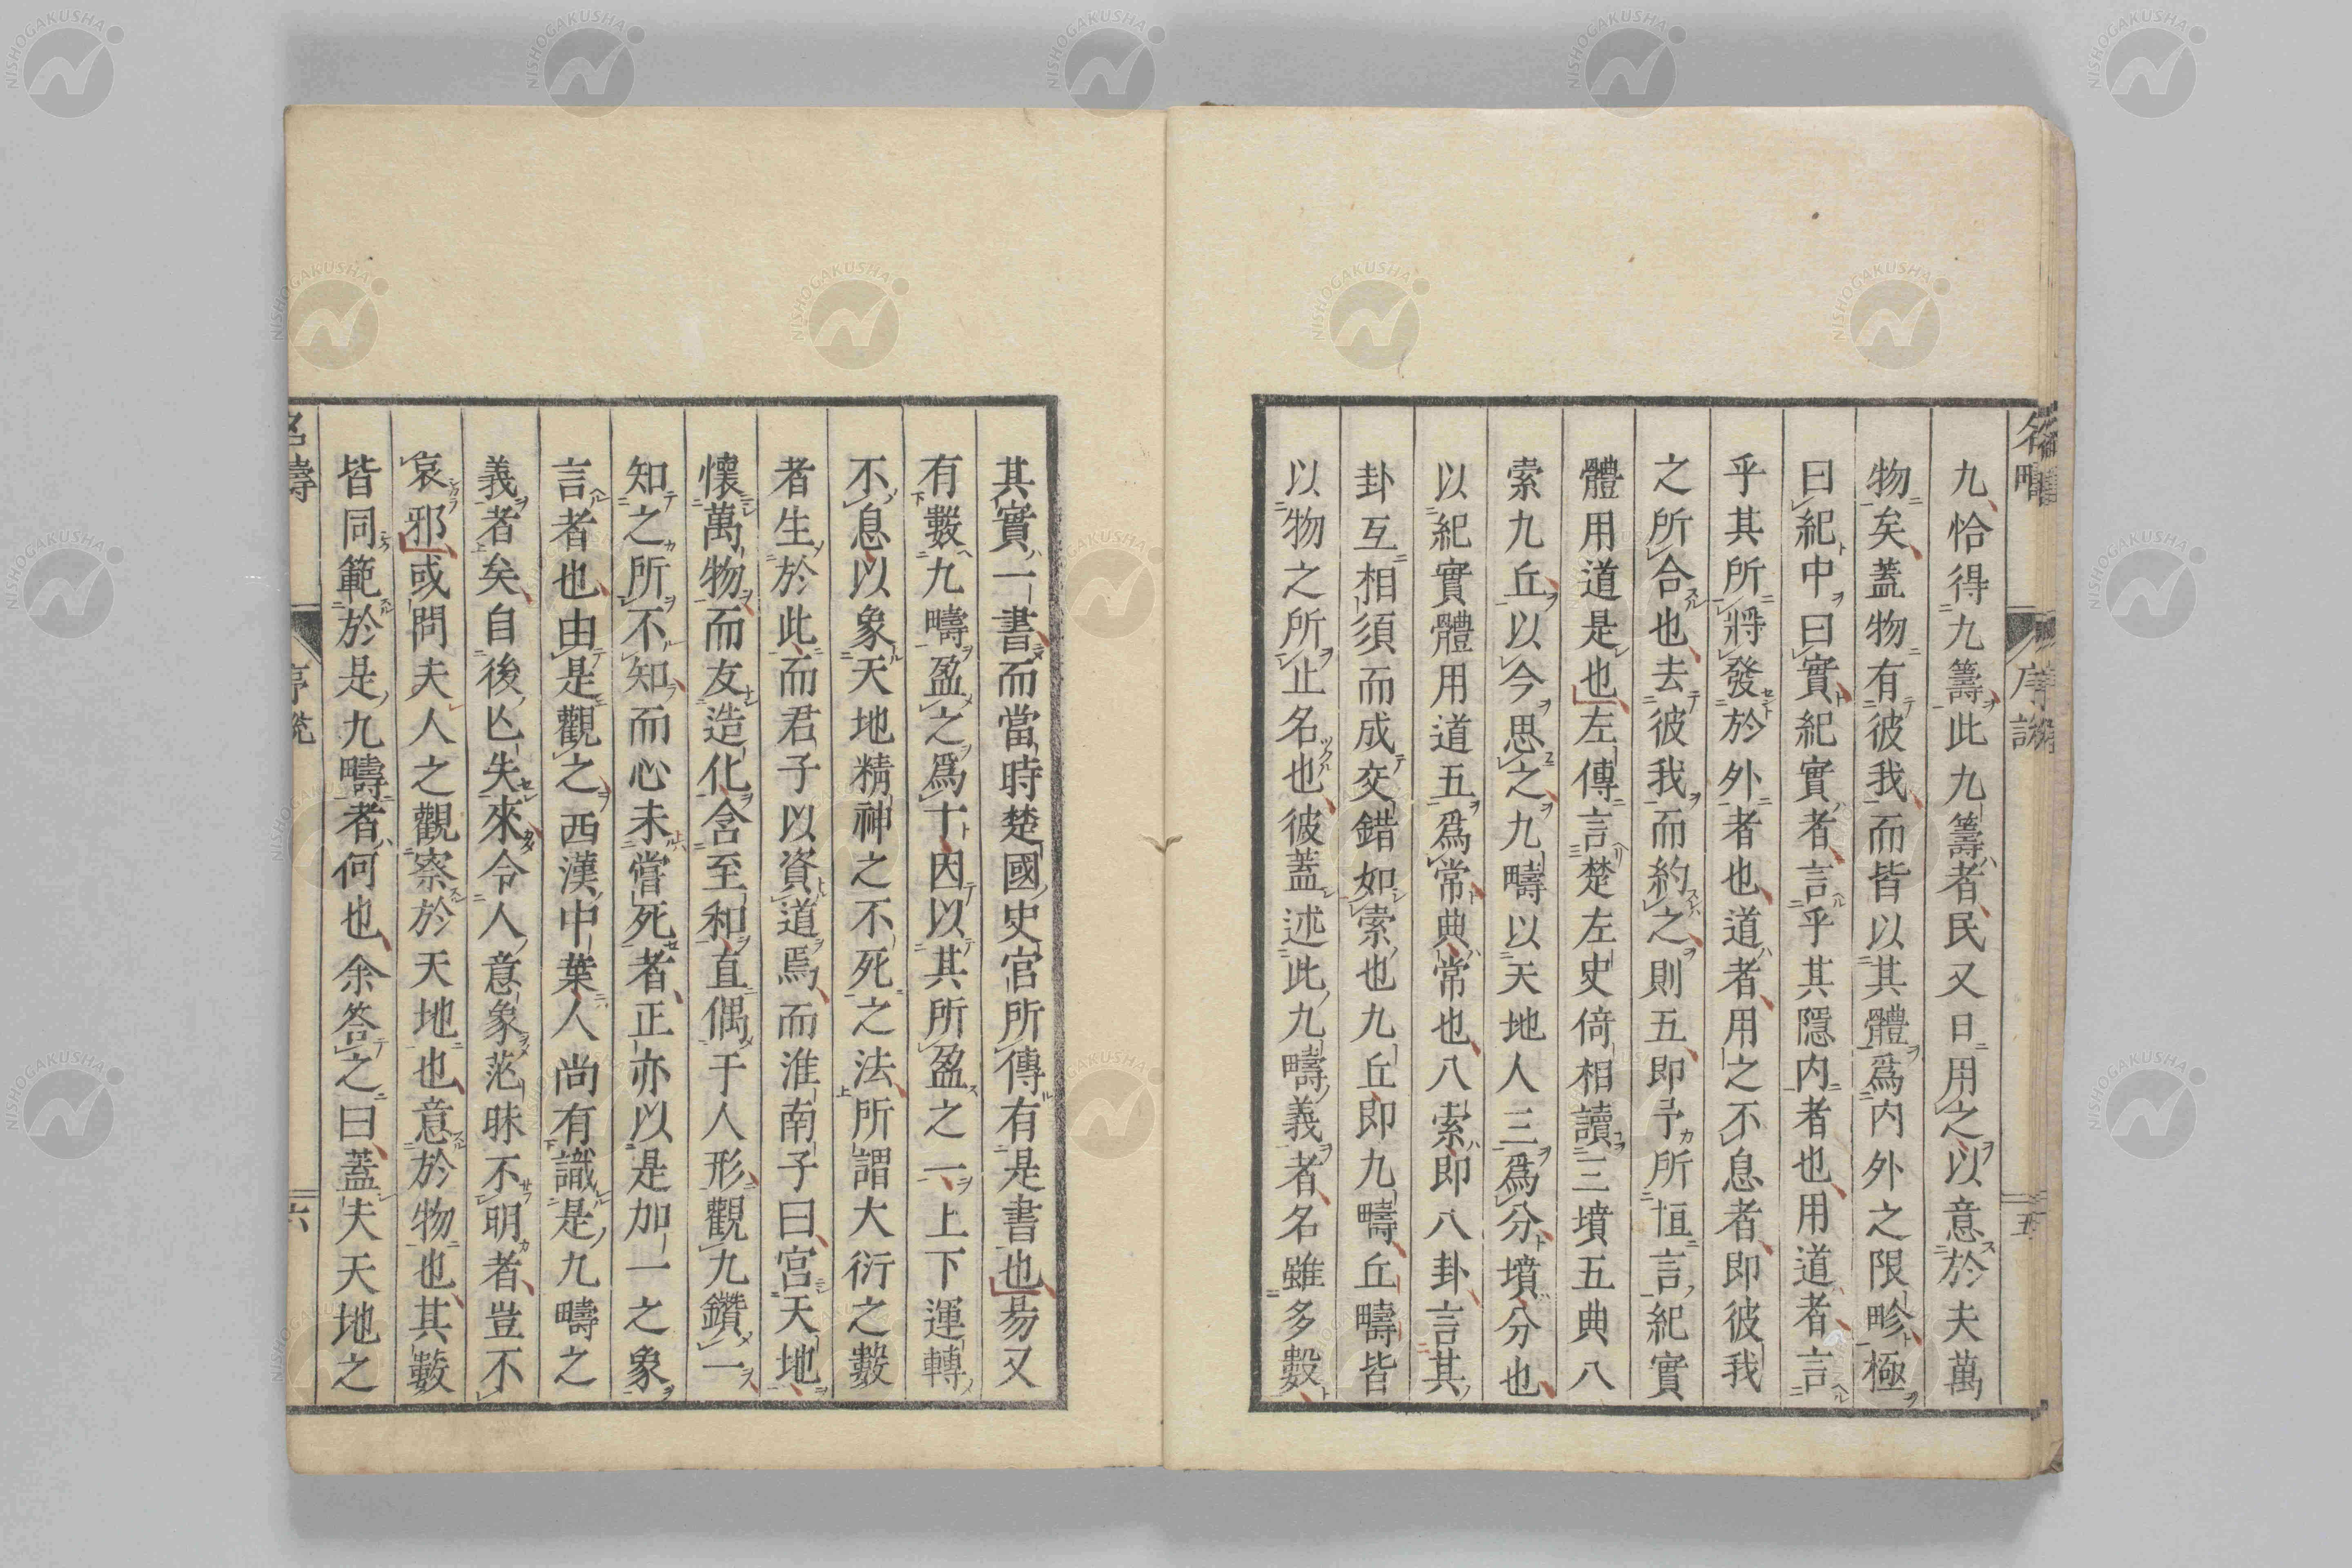 九恰得九籌此九籌者民又日用之以意於夫萬
物矣蓋物有彼我而皆以其體爲内外之限畛極
曰紀中曰實紀實者言乎其隱内者也用道者言
乎其所將發於外者也道者用之不息者即彼我
之所合也去彼我而約之則五即予所恒言紀實
體用道是也左傳言楚左史倚相讀三墳五典八
索九丘以今思之九疇以天地人三爲分墳分也
以紀實體用道五爲常典常也八索即八卦言其
卦互相須而成交錯如索也九丘即九疇丘疇皆
以物之所止名也彼蓋述此九疇義者名雖多數
其實一書而當時楚國史官所傳有是書也昜又
有數九疇盈之爲十因以其所盈之一上下運轉
不息以象天地精神之不死之法所謂大衍之數
者生於此而君子以資道焉而淮南子曰宮天地
懷萬物而友造化含至和直偶于人形觀九鑽一
知之所不知而心未嘗死者正亦以是加一之象
言者也由是觀之西漢中葉人尚有識是九疇之
義者矣自後亾失來令人意象茫昧不明者豈不
哀邪或問夫人之觀察於天地也意於物也其數
皆同範於是九疇者何也余答之曰蓋夫天地之
名疇
序說
六